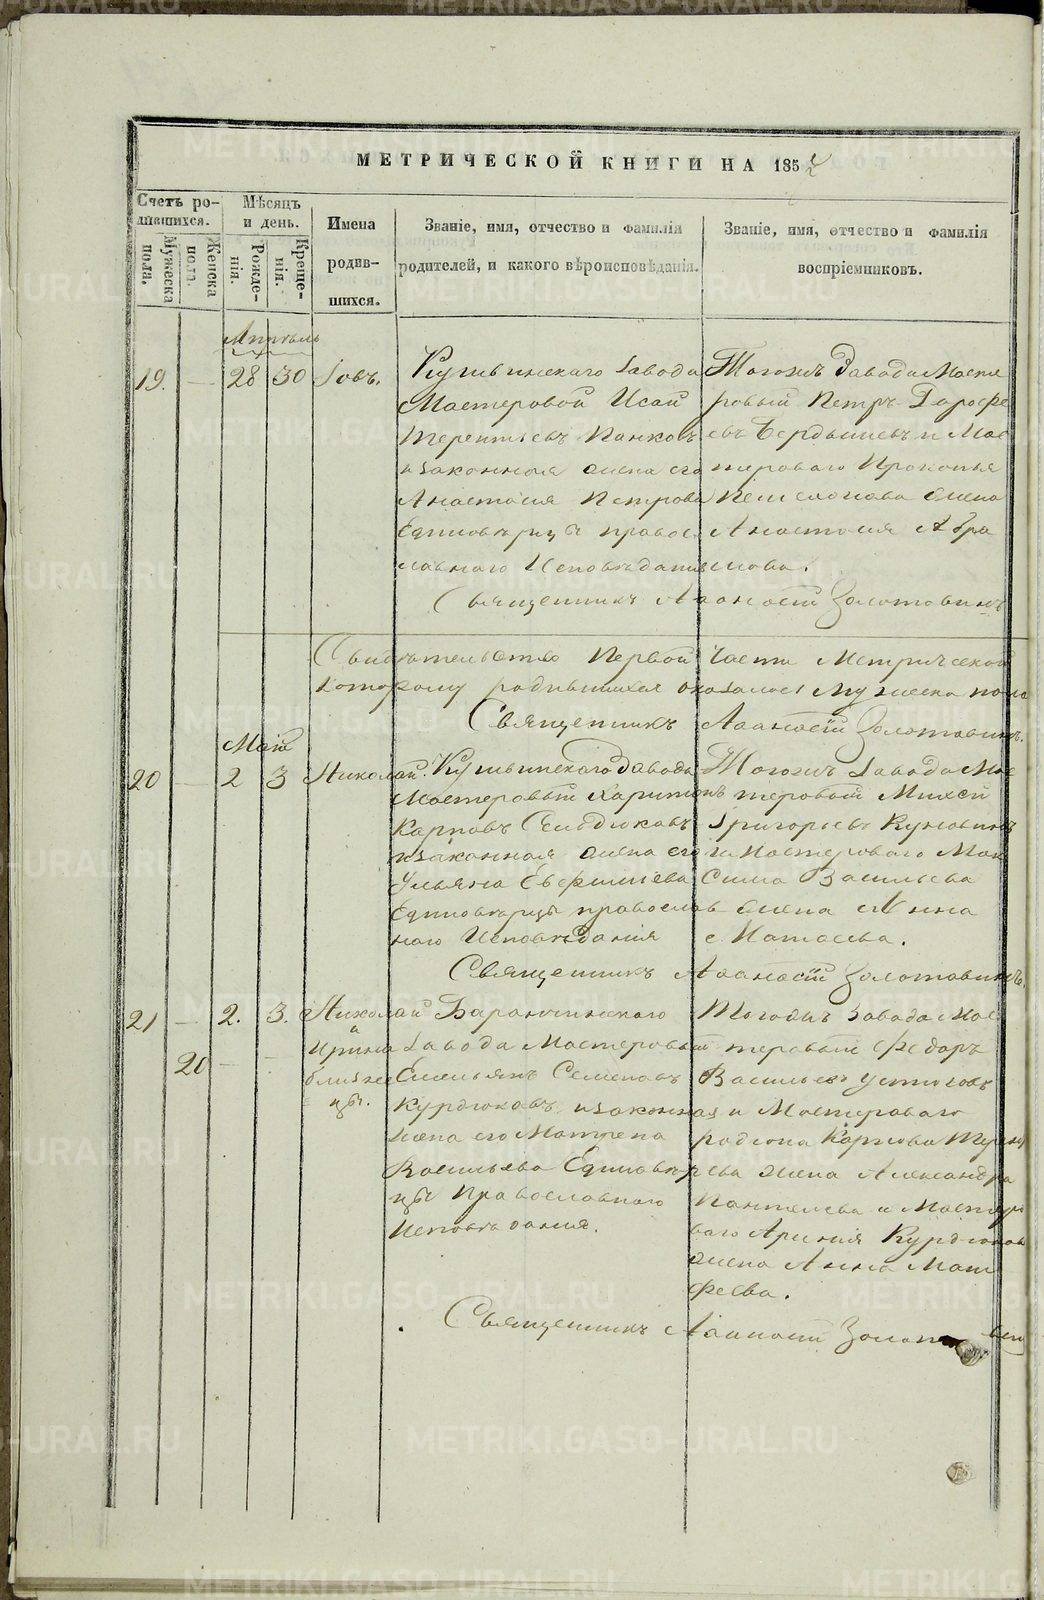 МЕТРИЧЕСКОЙ КНИГИ НА 185
Счетъ ро-
дившихся.
Мужеска
пола.
Женска
пола.
Мѣсяцъ
и день.
Рожде-
нія.
Креще-
нія.
Имена
родив-
шихся.
Званіе, имя, отчество и фамилія
родителей, и какого вѣроисповѣданія.
Званіе, имя, отчество и фамилія
воспріемниковъ.
Апрѣль
19. — 28 30 Іовъ.
Кушвинскаго завода
Мастеровой Исай
Терентьевъ Панковъ
и законная жена его
Анастасія Петрова
Единовѣрцы правос
лавнаго Исповѣданія
Тогожъ Завода Масте
ровый Петръ
евъ Бердышевъ и Мас
тероваго Прокопья
жена
Анастасия Абра
мова.
Священникъ Афанасій Золотавинъ
Свидѣтельство Первой Части Метрической
которому родившихся оказалось Мужеска пола
Священникъ Афанасій Золотавинъ.
Май
20 — 2 3 Николай.
Кушвинскаго Завода
Мастеровый Харитонъ
Карповъ
и законная жена его
Ульяна Евфимиева
Единовѣрцы православ
наго Исповѣдания
Тогожъ Завода Мас
теровый Михей
Григорьевъ
и Мастероваго Мак
сима Васильева
жена Анна
Матвева.
Священникъ Афанасій Золотавинъ.
21 — 2. 3. Николай
и
20 — — Ирина
близне
цы.
Баранчинскаго
Завода Мастеровый
Емельянъ Семеновъ
Курдюковъ и законная
жена его Матрена
Васильева Единовѣр
цы Православнаго
Исповѣдания.
Тогожъ Завода Мас
теровый Федоръ
Васильевъ
и Мастероваго
родиона Карпова
ева жена Александра
Пантелева и Мастеро
ваго
жена Анна Мат
феева.
Священникъ Афанасій